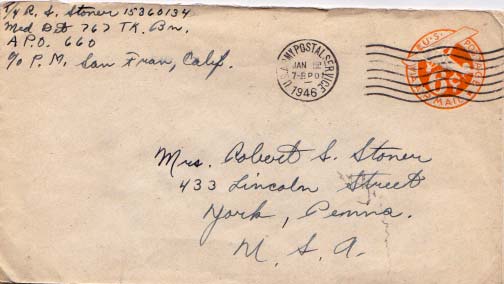 T/4 R. S. Stoner 15360134
Med Dt 767 TK. Bn.
A.P.O. 660
c/o P.M. San Fran, Calif.
U.S. ARMY POSTAL SERVICE
JAN
7-8 PM
1946
U.S. POSTAGE
6¢
AIR MAIL
Mrs. Robert S. Stoner
433 Lincoln Street
York, Penna.
U. S. A.